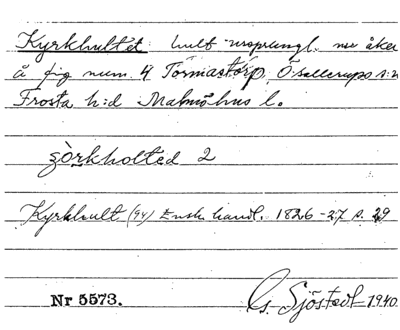 Kyrkhultet hult ursprungl. nu åker
å fig num. 4 Tormastorp, Ö. Sallerups s:n
Frosta h:d Malmöhus l.
Kyrkhult (94) Ensk. handl. 1826-27 s. 29
Nr 5573.
G. Sjöstedt 1940